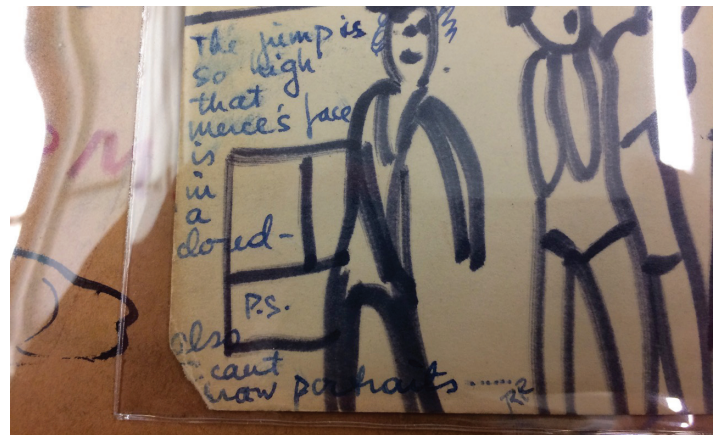 The jump is
so high
that
merce's face
is
in
a
cloud-
P.S.
also
cant
draw portraits......